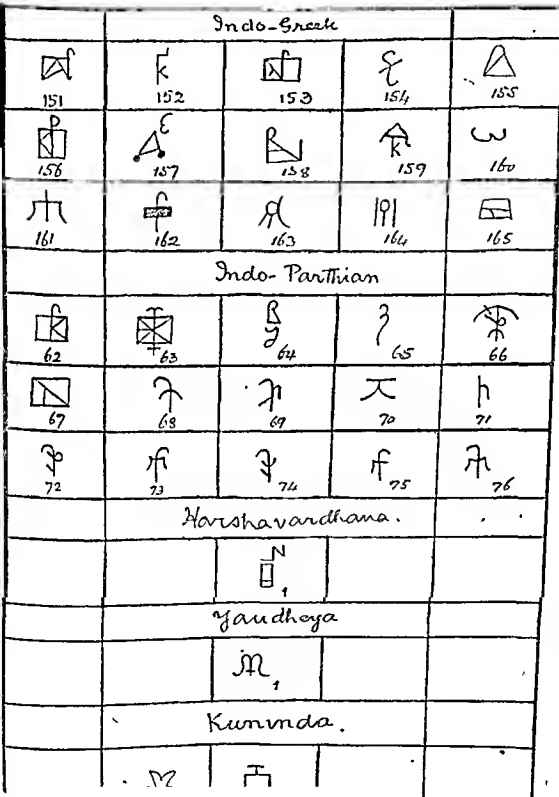 Indo-Greek
151 152 153 154 155
156 157 158 159 160
161 162 163 164 165
Indo-Parthian
62 63 64 65 66
67 68 69 70 71
72 73 74 75 76
Harshavardhana.
1
Yaudheya
1
Kuninda.